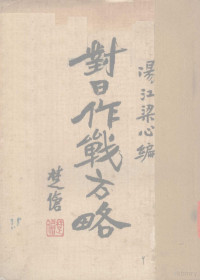 湯江梁心編
對日作戰方略
楚傖